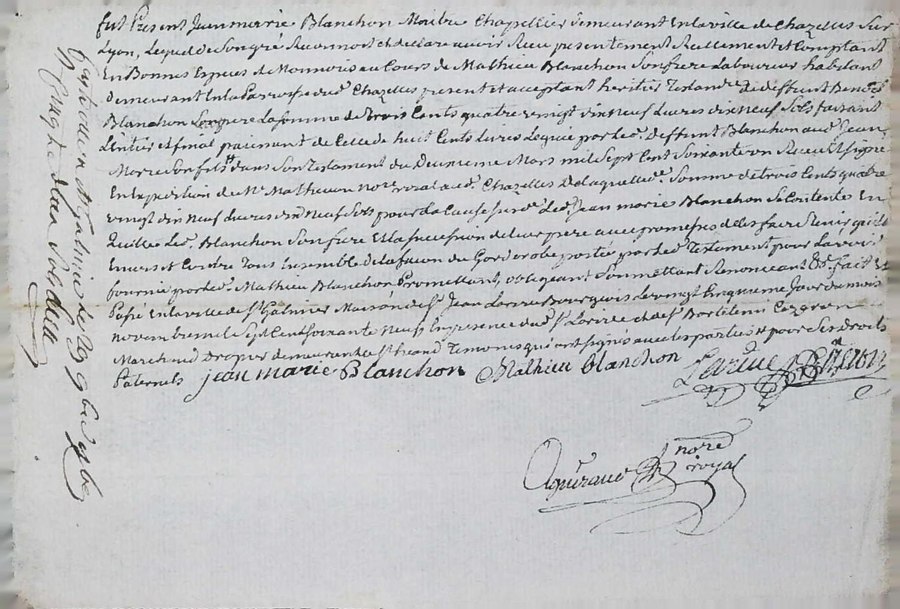 fut Present Jean marie Blanchon Maitre Chapellier demeurant En la ville de Chazelles Sur
Lyon, Lequel de Son gré Reconnoit et declare avoir Reçu presentement Reellement et Comptant
En Bonnes Especes de Monnois au Cours de Mathieu Blanchon Son frere Laboureur habitant
demeurant En la Parroisse dud. Chazelles present et acceptant heritier de deffunt Benoit
Blanchon Leur pere La Somme de trois Cents quatre vingt dix neuf Livres dix neuf Sols faisant
L'entier et final paiement de Celle de huit Cents Livres Leguée par led. deffunt Blanchon aud. Jean
Marie Son fils dans Son Testament du Deuxieme Mars mil Sept Cent Soixante un Recu Et Signé
En Expedition de Me Mathieu nore. roial aud. Chazelles De laquelle d. Somme de trois Cents quatre
vingt dix Neuf Livres dix Neuf Sols pour la Cause Susd. led. Jean marie Blanchon Se Contente En
Quitte led. Blanchon Son frere Et la Succession de leur pere avec promesse de les faire Tenir quitte
Envers et Contre Tous Ensemble de la façon du Garderobe portée par led. Testament pour L'avoir
fournie par led. Mathieu Blanchon Promettant, obligeant Soumettant Renonceant &c. fait Et
Passé En la ville de St. Galmier Maison de Sr. Jean Larive Bourgeois Le vingt Cinquieme Jour du mois
novembre mil Sept Cent Soixante Neuf En presence dud. Sr. Larive et de Sr. Bartelemi
Marchand Drapier demeurants Temoins qui ont Signés avec les parties # pour Ses droits
Paternels jean marie Blanchon Mathieu blanchon Larive
nore.
royal
a St. galmier le 29 9bre 1769